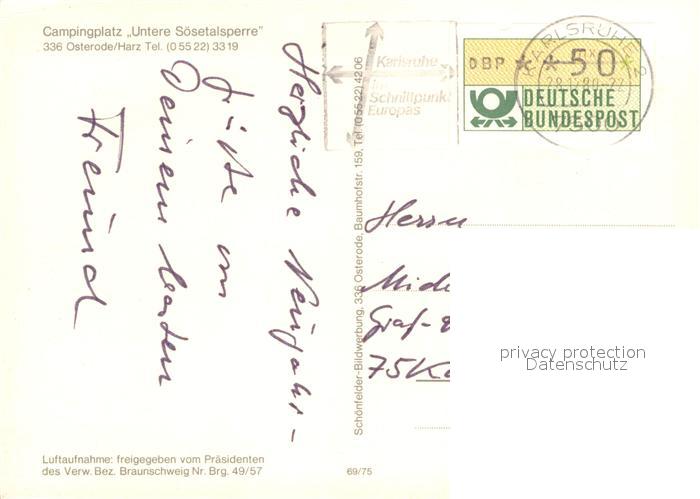 Campingplatz „Untere Sösetalsperre”
336 Osterode/Harz Tel. (0 55 22) 33 19
Herzliche Neujahr-
Grüße von
Deinem besten
Freund
Luftaufnahme: freigegeben vom Präsidenten
des Verw. Bez. Braunschweig Nr. Brg. 49/57
69/75
Schönfelder-Bildwerbung, 336 Osterode, Baumhofstr. 159, Tel. (0 55 22) 42 06
Karlsruhe
im
Schnittpunkt
Europas
KARLSRUHE 2
DBP * * 50 *
DEUTSCHE
BUNDESPOST
Herrn
Graf-
75 Ka
privacy protection
Datenschutz